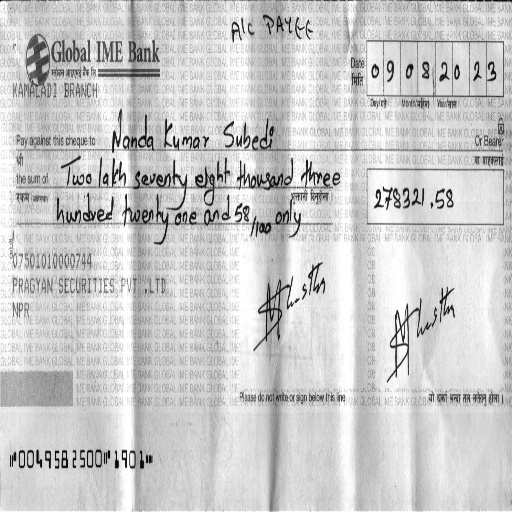 A/C PAYEE
Global IME Bank
ग्लोबल आइएमई बैंक लि.
KAMALADI BRANCH
Date
मिति
09 08 2023
Day/गते Month/महिना Year/साल
Pay against this cheque to Nanda Kumar Subedi Or Bearer
श्री वा वाहकलाई
the sum of Two lakh seventy eight thousand three
रकम (अक्षरमा)
hundred twenty one and 58/100 only
278321.58
07501010000744
PRAGYAN SECURITIES PVT .LTD
NPR
Please do not write or sign below this line
⑈0049582500⑈1901⑈